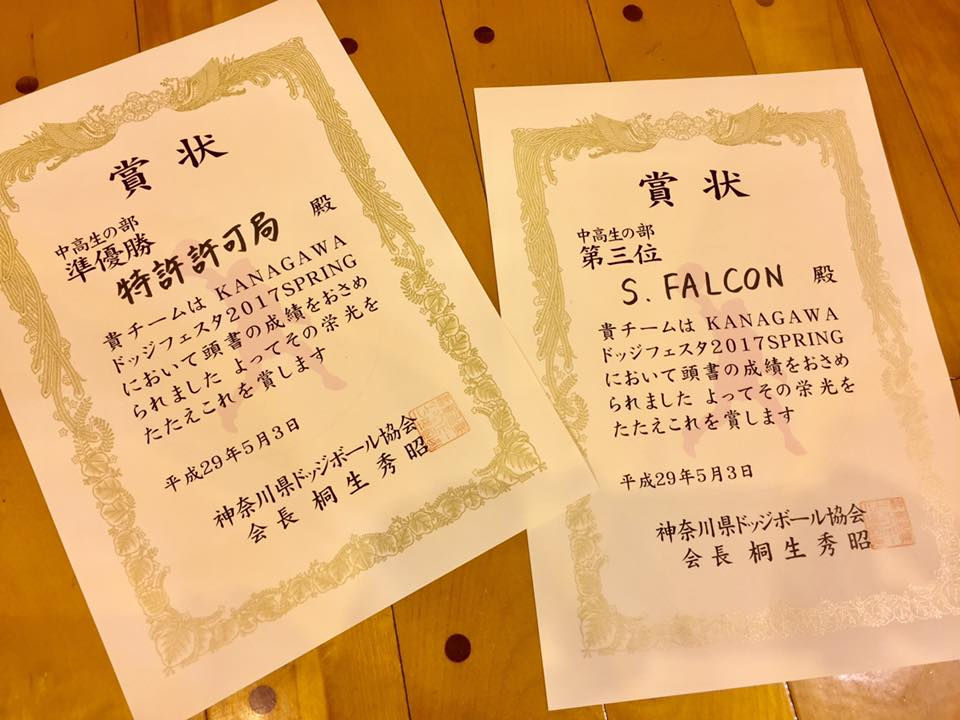 賞状
中高生の部
準優勝
特許許可局 殿
貴チームは KANAGAWA
ドッジフェスタ2017SPRING
において頭書の成績をおさめ
られました よってその栄光を
たたえこれを賞します
平成29年5月3日
神奈川県ドッジボール協会
会長 桐生秀昭
賞状
中高生の部
第三位
S. FALCON 殿
貴チームは KANAGAWA
ドッジフェスタ2017SPRING
において頭書の成績をおさめ
られました よってその栄光を
たたえこれを賞します
平成29年5月3日
神奈川県ドッジボール協会
会長 桐生秀昭